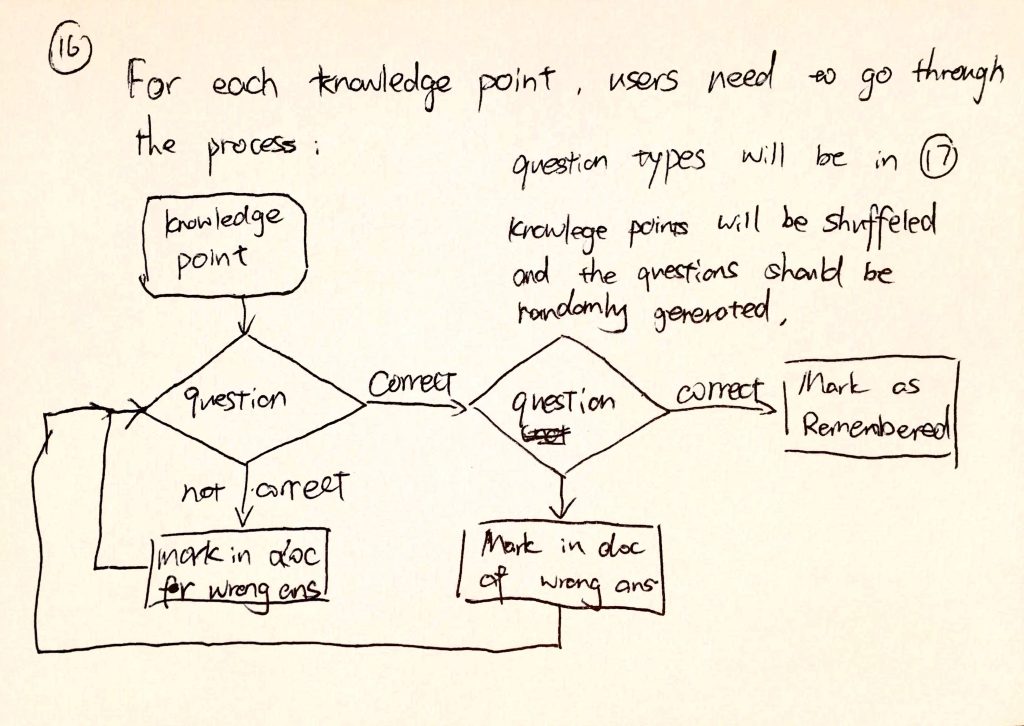 16
For each knowledge point, users need to go through
the process:
question types will be in 17
knowlege points will be shuffeled
and the questions should be
randomly generated,
knowledge
point
question
Correct
question
correct
Mark as
Remembered
not correct
mark in doc
for wrong ans
Mark in doc
of wrong ans